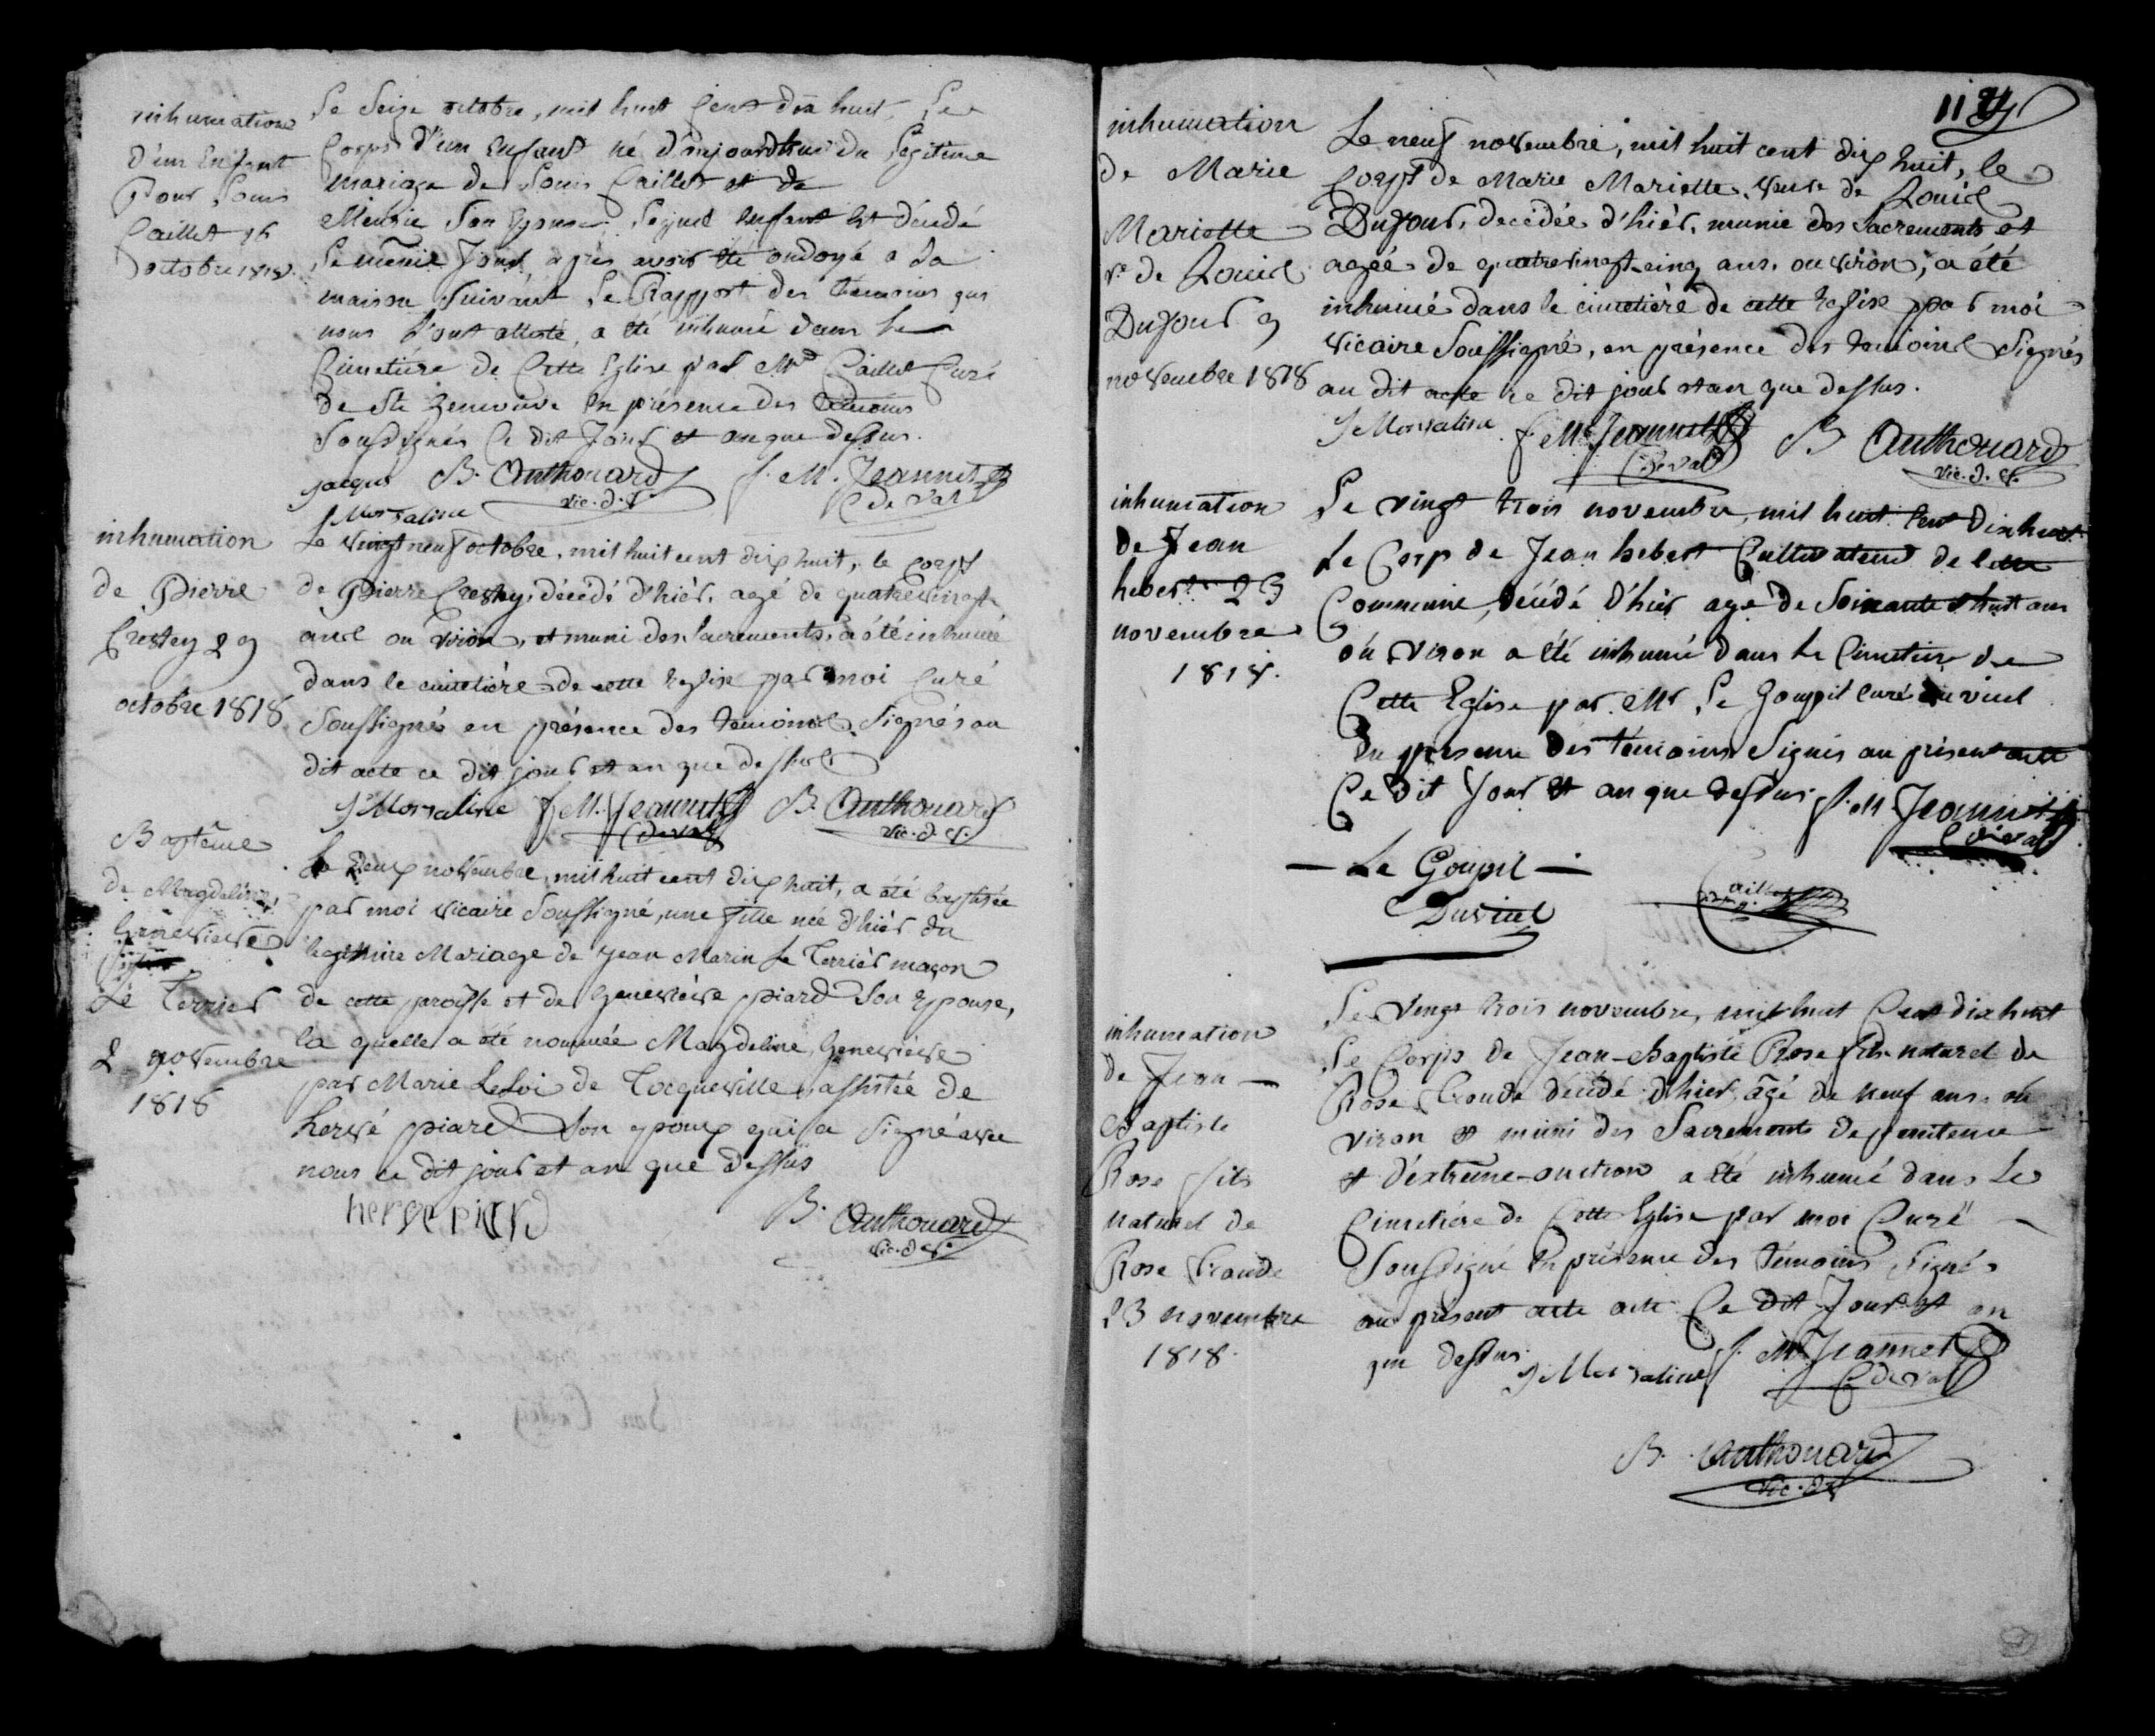 inhumation
d'un Enfant
pour Louis
Caillet 16
octobre 1818
Le Seize octobre, mil huit Cent dix huit, Le
Corps d'un Enfant né d'aujourdhui du Legitime
mariage de Louis Caillet et de
son Epouse, Lequel Enfant Est décédé
Le même Jour, après avoir été ondoyé a la
maison Suivant Le Rapport des témoins qui
nous l'ont attesté, a été inhumé dans Le
Cimetière de Cette Eglise par Mr Caillet Curé
de Ste Geneviève En présence des témoins
Soussignés Ce dit Jour et an que dessus.
jacque B. Anthouard f. M. Jeannet
J Morsaline vic. d. V. C de Val
inhumation
de Pierre
Crestey 29
octobre 1818
Le vingt neuf octobre, mil huit cent dix huit, le corps
de Pierre Crestey, décédé d'hièr, agé de quatrevingt
ans ou viron, et muni des Sacrements, a été inhumé
dans le cimetière de cette Eglise par moi Curé
Soussigné en présence des temoins Signés au
dit acte ce dit jour et an que dessus
J Morsaline f. M. Jeannet B. Anthouard
C de Val vic. d. V.
Baptême
de Magdeleine,
Geneviève
Le Terrier
2 novembre
1818
Le Deux novembre, mil huit cent dix huit, a été baptisée
par moi vicaire Soussigné, une fille née d'hièr du
legitime Mariage de Jean Marin Le Terrièr maçon
de cette paroisse et de Geneviève piard Son Epouse,
la quelle a été nommée Magdeleine, Geneviève
par Marie LeLoi de Tocqueville assistée de
hervé piard Son epoux qui a Signé avec
nous ce dit jour et an que dessus
herve piard
B. Anthouard
vic. d. V.
112
inhumation
de Marie
Mariette
ve de Louis
Dufour 9
novembre 1818
Le neuf novembre, mil huit cent dix huit, le
corps de Marie Mariette, veuve de Louis
Dufour, decédée d'hièr, munie des Sacrements et
agée de quatrevingt-cinq ans, ou viron, a été
inhumé dans le cimetière de cette Eglise par moi
vicaire Soussigné, en présence des temoins Signés
au dit acte ce dit jour et an que dessus.
J Morsaline f. M. Jeannet B Anthouard
C de Val vic. d. V.
inhumation
de Jean
hebert 23
novembre
1818.
Le vingt trois novembre, mil huit Cent dixhuit
Le Corp de Jean hebert Cultivateur de Cette
Commune, décédé d'hier agé de Soixante & huit ans
ou viron a été inhumé dans Le Cimetière de
Cette Eglise par Mr Le Goupil curé du vicel
En présence des témoins Signés au présent acte
Ce dit Jour et an que dessus. f. M. Jeannet
C de Val
Le Goupil
Duvicel
inhumation
de Jean
Baptiste
Rose fils
naturel de
Rose Troude
23 novembre
1818.
Le vingt trois novembre, mil huit Cent dixhuit
Le Corps de Jean-Baptiste Rose fils naturel de
Rose Troude décédé d'hier, âgé de neuf ans ou
viron et muni des Sacrements de penitence
et d'extrême-onction a été inhumé dans Le
Cimetière de Cette Eglise par moi Curé
Soussigné En présence des témoins Signés
au présent acte acte Ce dit Jour et an
que dessus. J Morsaline f. M. Jeannet
C de Val
B. Anthouard
vic. d. V.